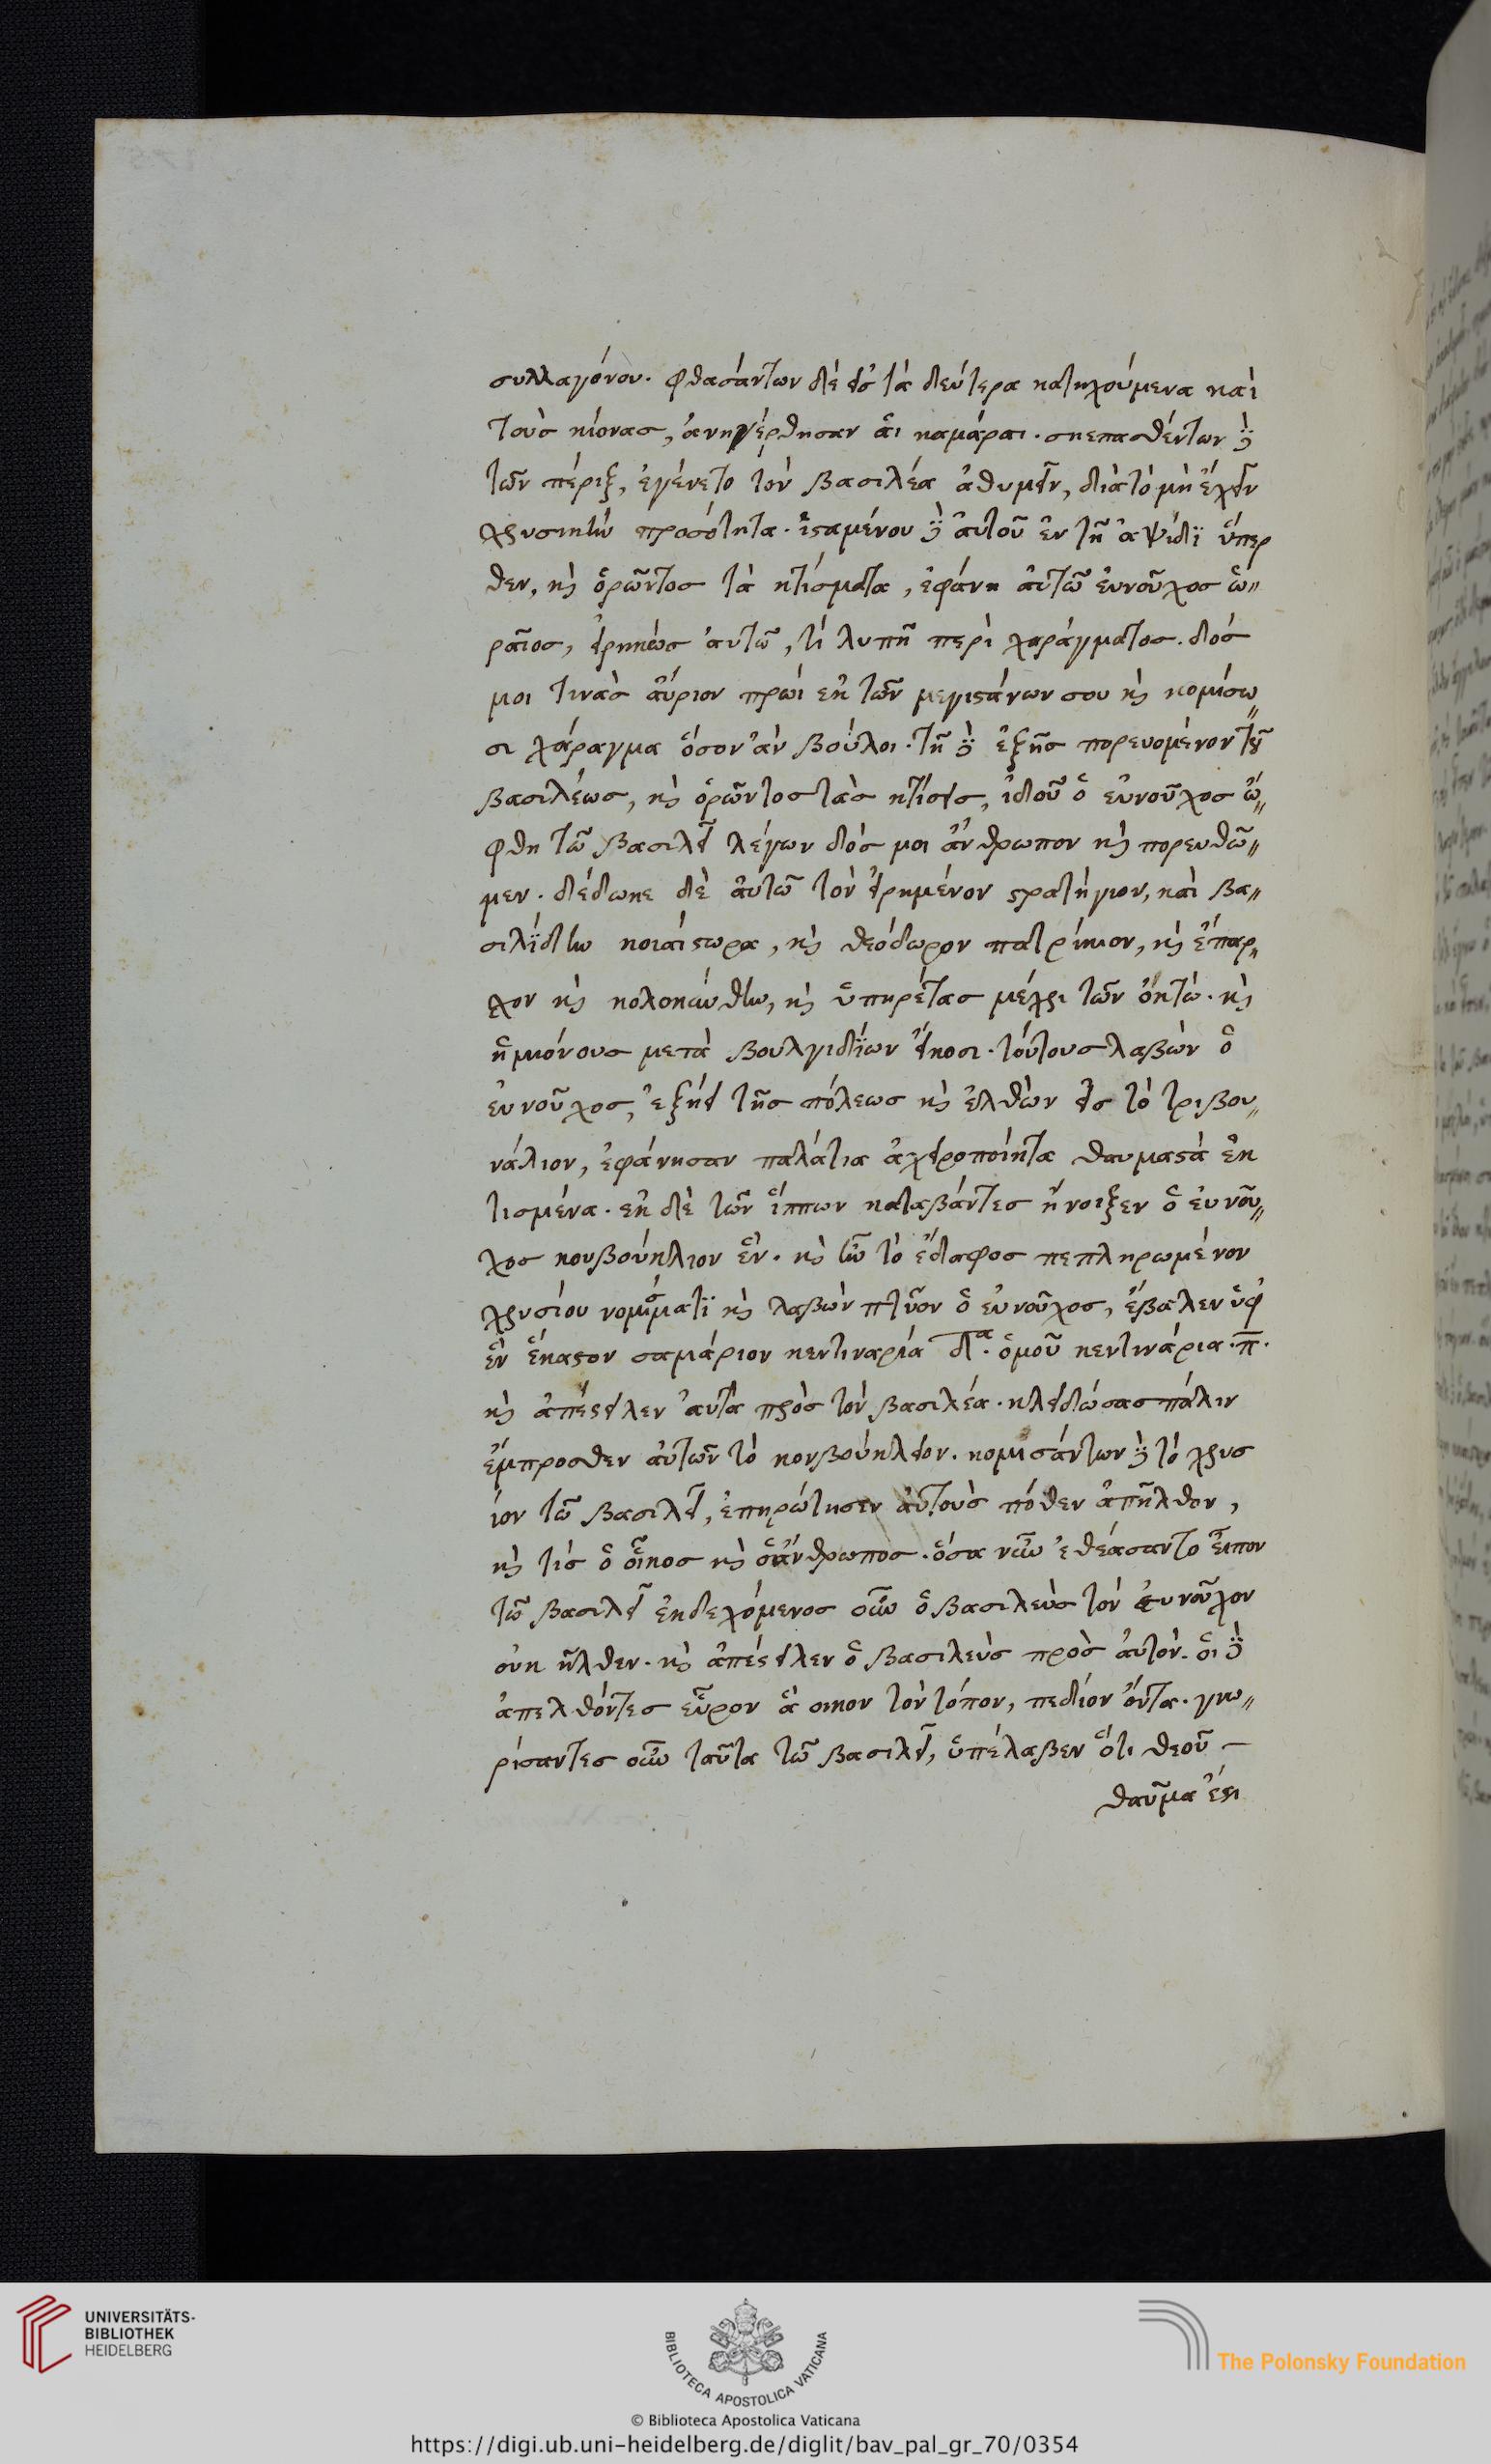 συλλαγόνου. φθασάντων δὲ εἰς τὰ δεύτερα κατηχούμενα καὶ
τοὺς κίονας, ἀνηγέρθησαν ἁι καμάραι. σκεπασθέντων δὲ
τῶν πέριξ, ἐγένετο τὸν βασιλέα ἀθυμεῖν, διὰ τὸ μὴ ἔχειν
χρυσικὴν προσότητα. ἱσταμένου δὲ ἀυτοῦ ἐν τῇ ἀψίδϊ ὕπερ
θεν, καὶ ὁρῶντος τὰ κτίσματα, ἐφάνη ἀυτῶ ἐυνοῦχος ὡ„
ραῖος, εἰρηκὼς ἀυτῶ, τί λυπῆ περὶ χαράγματος. δός
μοι τινὰς ἄυριον πρωί ἐκ τῶν μεγιστάνων σου καὶ κομίσω„
σι χάραγμα ὅσον ἂν βούλοι. τῆ δὲ ἑξῆς πορευομένον τοῦ
βασιλέως, καὶ ὁρῶντος τὰς κτίσεις, ἰδοῦ ὁ ἐυνοῦχος ὤ„
φθη τῶ βασιλεῖ λέγων δός μοι ἄνθρωπον καὶ πορευθῶ„
μεν. δέδωκε δὲ ἀυτῶ τὸν εἰρημένον στρατήγιον, καὶ βα„
σιλϊδην κοιαίστωρα, καὶ θεόδωρον πατρίκιον, καὶ ἔπαρ„
χον καὶ κολοκώνθην, καὶ ὑπηρέτας μέχρι τῶν ὀκτώ. καὶ
ἡμιόνους μετὰ βουλγιδΐων εἴκοσι. τούτους λαβὼν ὁ
ἐυνοῦχος, ἐξήει τῆς πόλεως καὶ ἐλθὼν εἰς τὸ τριβου„
νάλιον, ἐφάνησαν παλάτια ἀχειροποίητα θαυμαστὰ ἐκ
τισμένα. ἐκ δὲ τῶν ἵππων καταβάντες ἤνοιξεν ὁ ἐυνοῦ„
χος κουβούκλιον ἕν. καὶ ἦν τὸ ἔδαφος πεπληρωμένον
χρυσίου νομίσματϊ καὶ λαβὼν πτῦον ὁ ἐυνοῦχος, ἔβαλεν ὑφ'
ἓν ἕκαστον σαμάριον κεντιναρία δα. ὁμοῦ κεντινάρια. π̅.
καὶ ἀπέστειλεν ἀυτὰ πρὸς τὸν βασιλέα. κλειδώσας πάλιν
ἔμπροσθεν ἀυτῶν τὸ κουβούκλειον. κομισάντων δὲ τὸ χρυσ
ίον τῶ βασιλεῖ, ἐπηρώτησεν ἀυτοὺς πόθεν ἀπῆλθον,
καὶ τίς ὁ ὅικος καὶ ὁ ἄνθρωπος. ὅσα νῦν ἐθεάσαντο ἔιπον
τῶ βασιλεῖ ἐκδεχόμενος οὖν ὁ βασιλεὺς τὸν ἐυνοῦχον
ὀυκ ἦλθεν. καὶ ἀπέστειλεν ὁ βασιλεὺς πρὸς ἀυτόν. ὁι δὲ
ἀπελθόντες εὗρον ἄοικον τὸν τόπον, πεδίον ὄντα. γνω„
ρίσαντες οὖν ταῦτα τῶ βασιλεῖ, ὑπέλαβεν ὅτι θεοῦ –
θαῦμα ἐστι
UNIVERSITÄTS-
BIBLIOTHEK
HEIDELBERG
BIBLIOTECA APOSTOLICA VATICANA
The Polonsky Foundation
© Biblioteca Apostolica Vaticana
https://digi.ub.uni-heidelberg.de/diglit/bav_pal_gr_70/0354